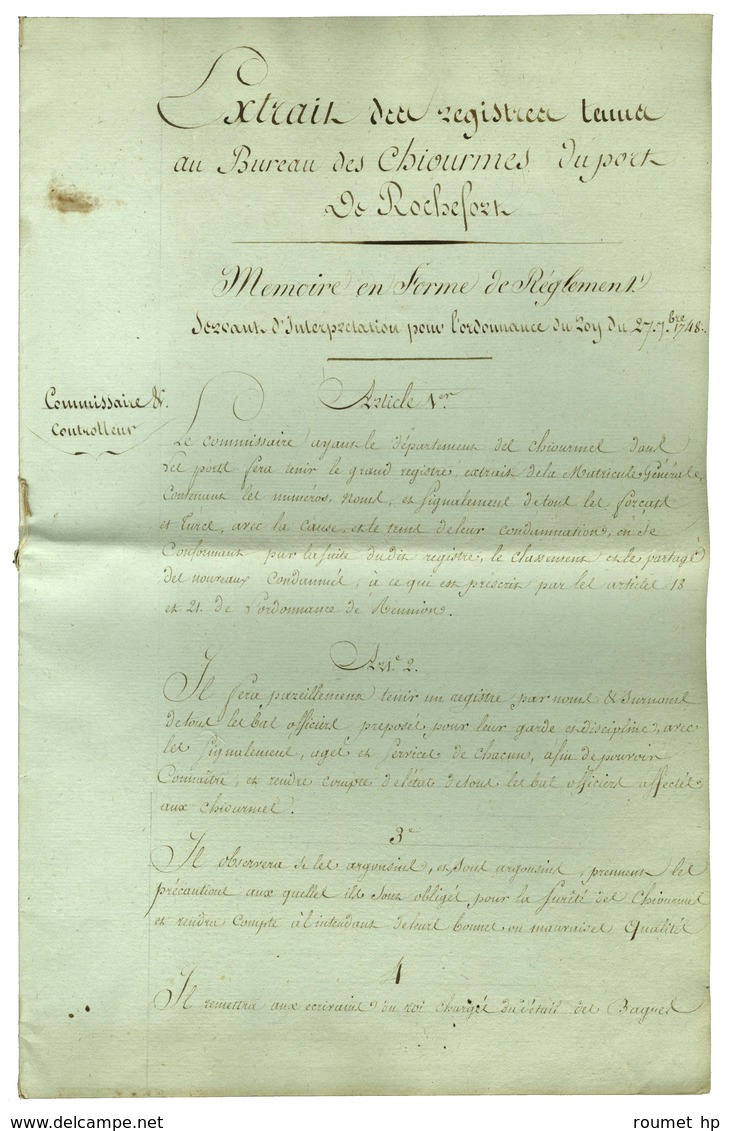 Extrait des registres tenus
au Bureau des Chiourmes du port
De Rochefort
Mémoire en Forme de Réglement
Servant d'Interpretation pour l'ordonnance du Roy du 27. 7.bre 1748.
Commissaire &
Controlleur
Article 1er.
Le commissaire ayant le département des chiourmes dans
les ports fera tenir le grand registre extrait de la Matricule Générale,
Contenant les numéros, Noms, et signalement de tous les forçats
et Turcs, avec la cause et le tems de leur condamnation, en se
Conformant par la suite dudit registre, le classement et le partage
des nouveaux Condamnés, à ce qui est préscrit par les articles 18
et 21. de l'ordonnance de Réunion.
Art.e 2.
Il fera pareillement tenir un registre par noms & surnoms
de tous les bas officiers preposés pour leur garde et discipline, avec
les signalement, ages et services de chacun, afin de pouvoir
Connaître, et rendre compte de l'état de tous les bas officiers affectés
aux chiourmes.
3e
Il observera si les argousins, et sous argousins, prennent les
précautions aux quelles ils sont obligés pour la sureté des Chiourmes
et rendra Compte à l'intendant de leurs bonnes ou mauvaises Qualités
4
Il remettra aux ecrivains du roi chargés du détail des Bagnes
roumet hp